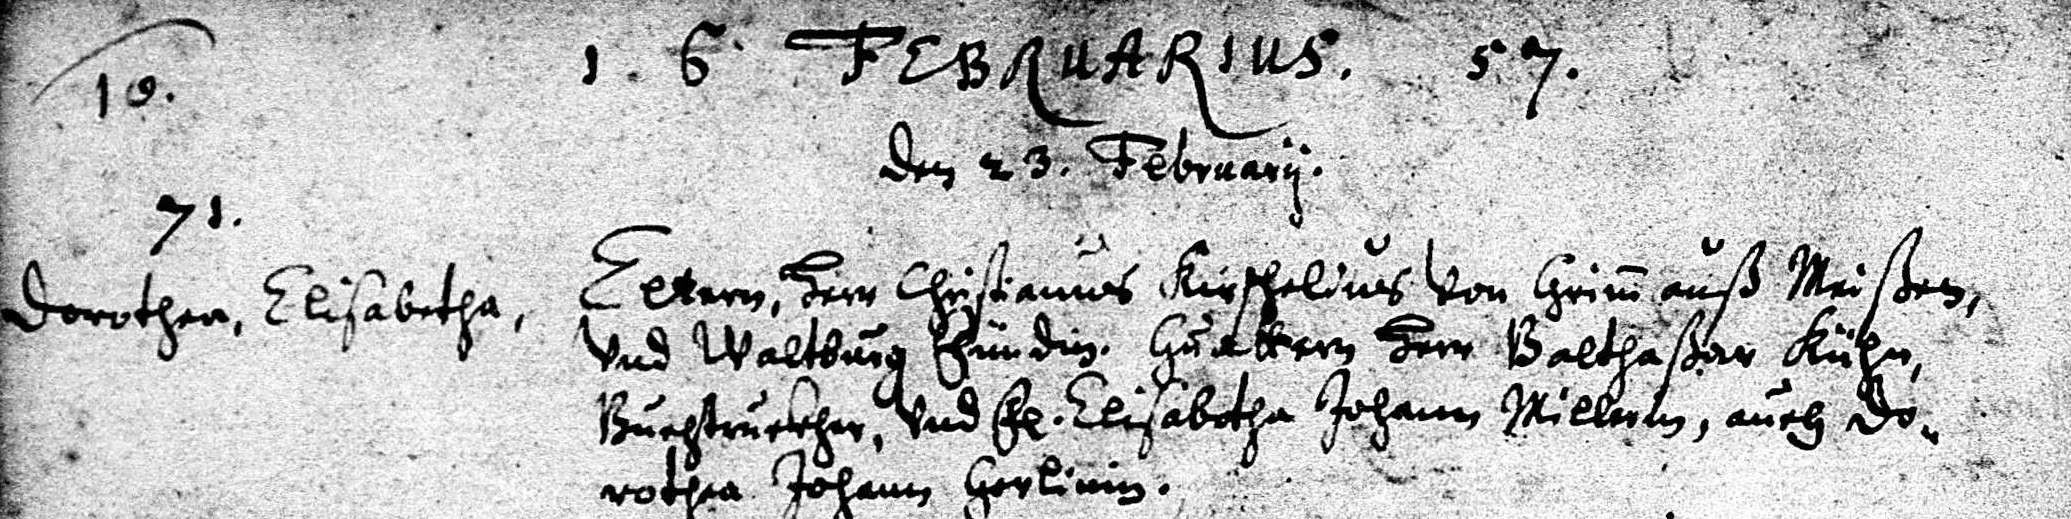 10.
1. 6. FEBRUARIUS. 5 7.
Den 23. Februarij.
71.
Dorothea, Elisabetha, Eltern, Herr Christianus Kirschelius von Grim̄ auß Meißen,
Vnd Waltburg Gevattern Herr Balthaßar Kühn,
Buechtruckher, Vnd Elisabetha Johann Millerin, auch Do-
rothea Johann Gerlinin.